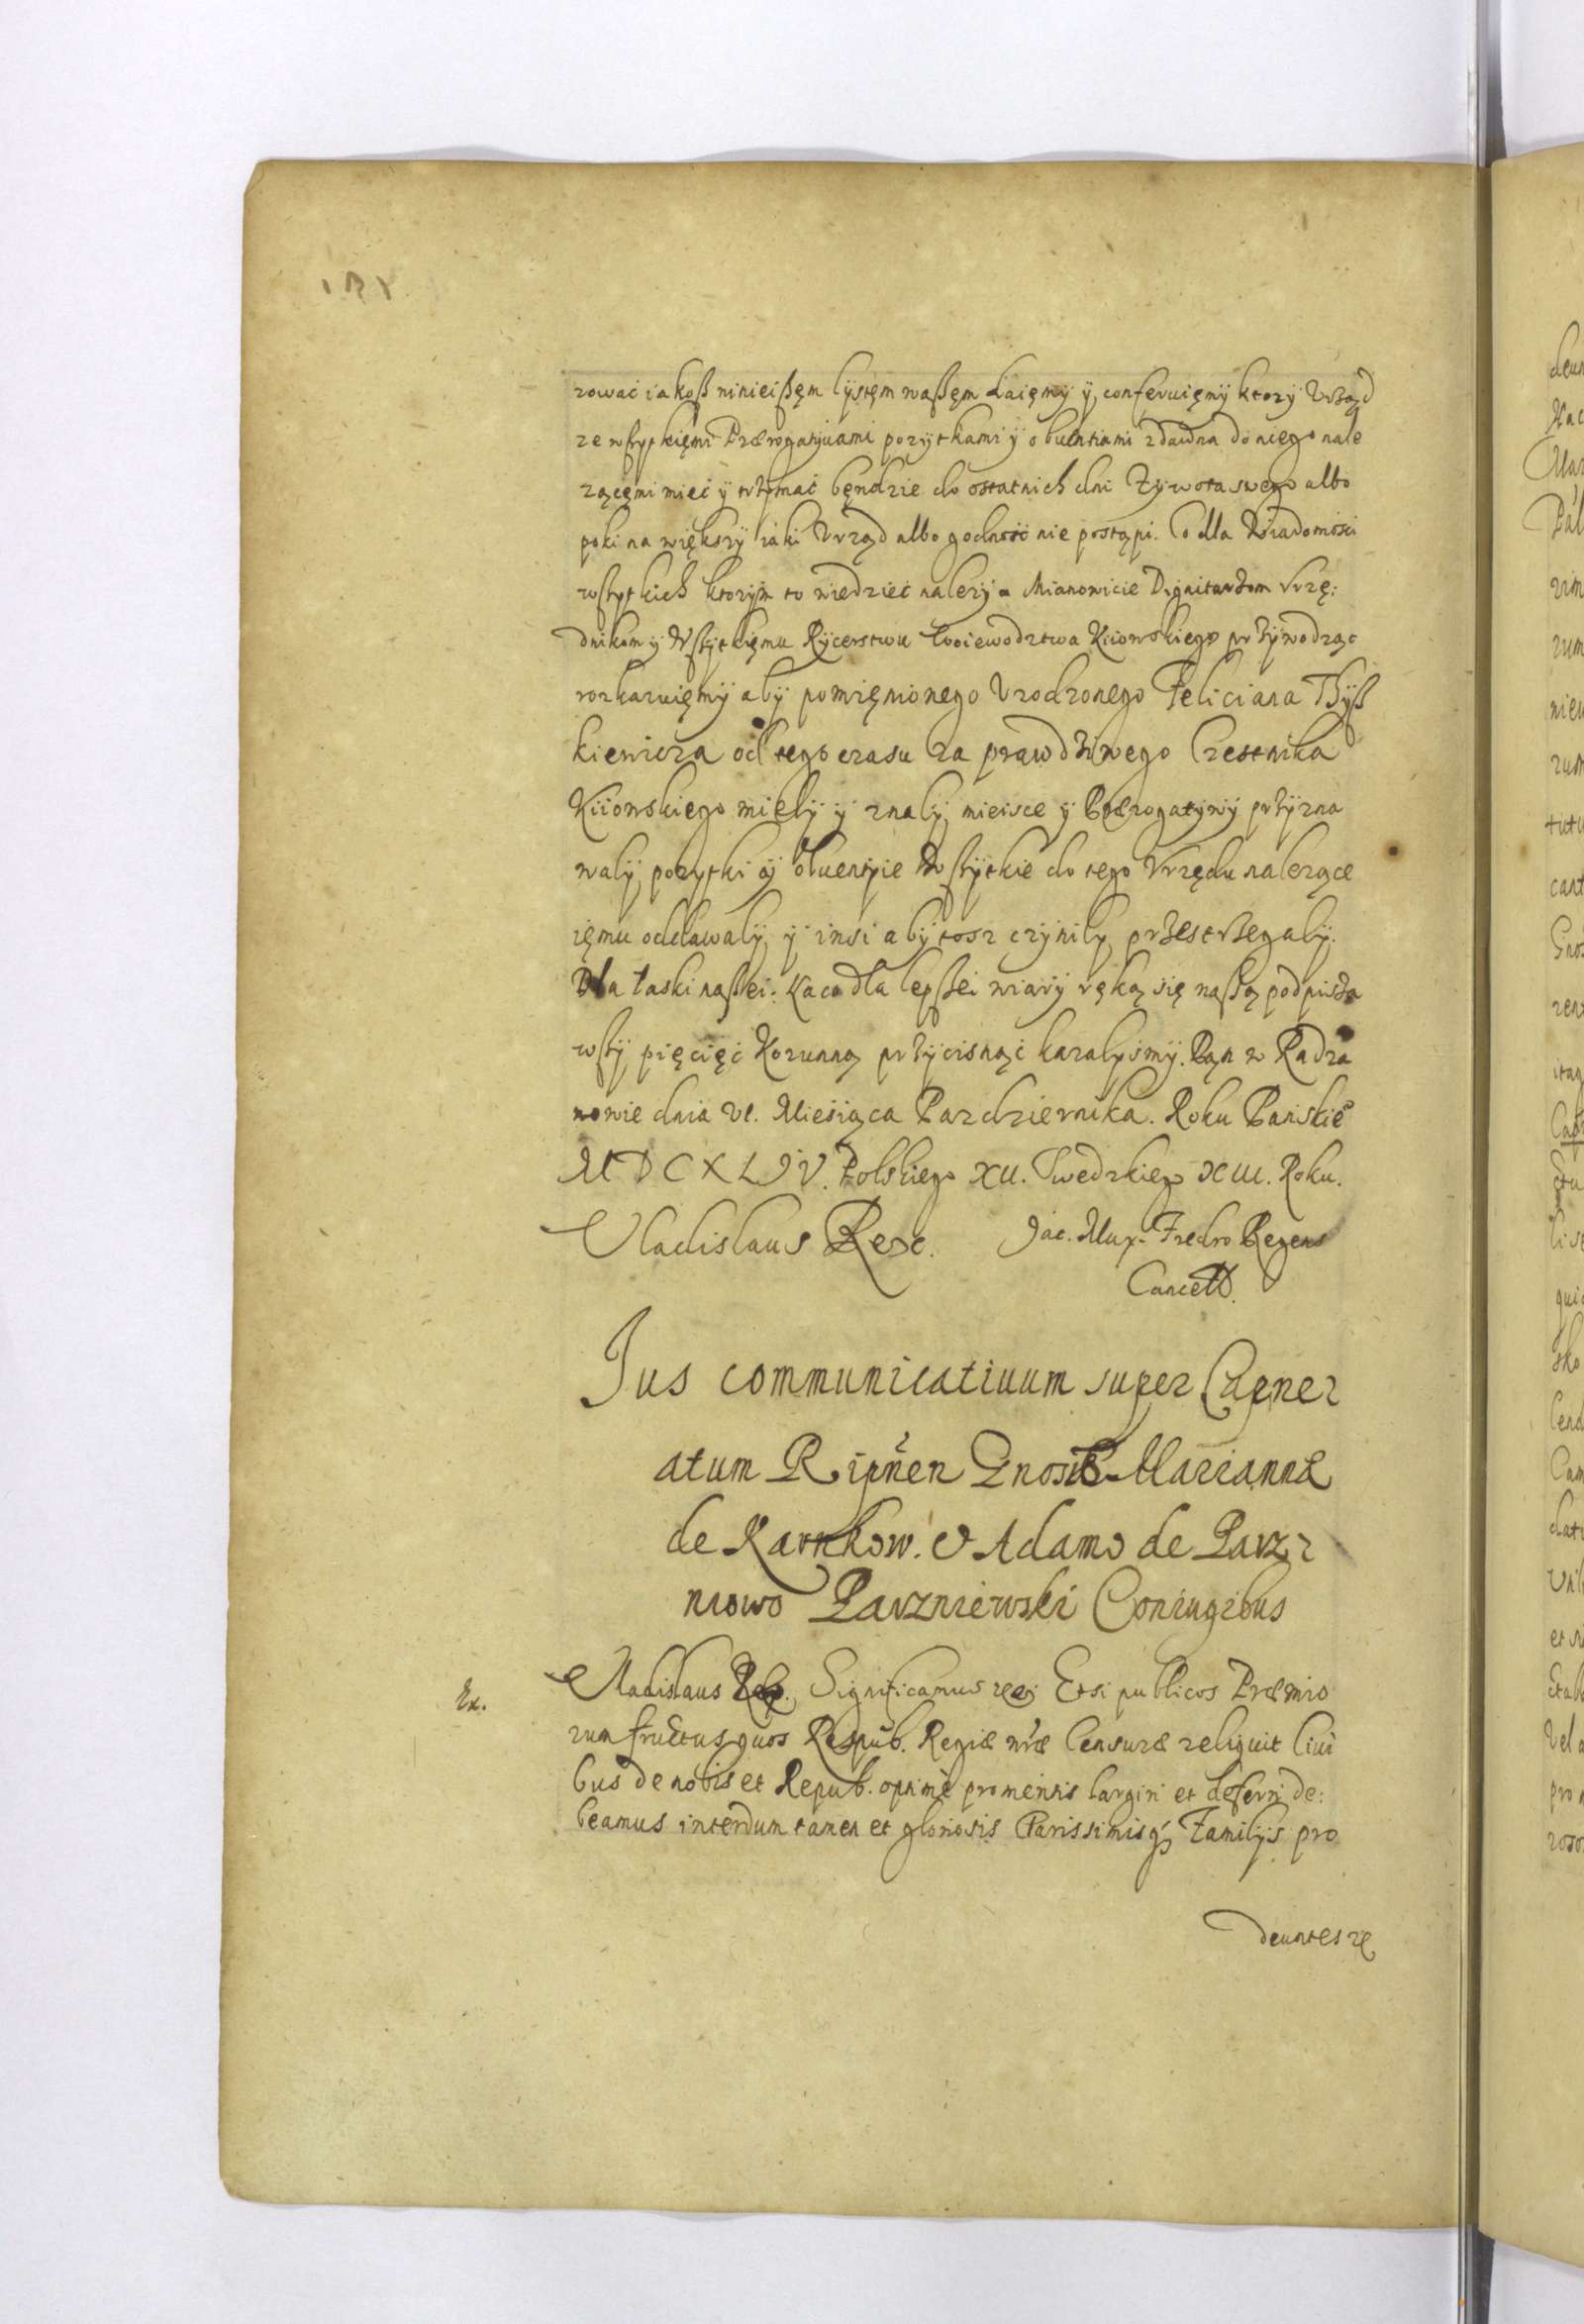 rować iakoß ninieißęm lystęm naßęm daięmÿ ÿ conferuięmÿ ktorÿ Vrząd
ze wßytkięmi Prærogatÿuami pozÿtkami ÿ obuentiami zdawna do niego nale
zącęmi mieć ÿ trzÿmać bęndzie do ostatnich dni Zÿwota swego albo
poki na większÿ iaki Vrząd albo godność nie postąpi. Co dla Wiadomosci
wßytkich ktorÿm to wiedzieć nalezÿ a Mianowicie Dignitarzom Vrzę:
dnikom ÿ Wßÿtkięmu Rÿcerstwu Woiewodztwa Kiiowskiego przÿwodząc
rozkazuięmÿ abÿ pomięnionego Vrodzonego Feliciana Thÿß
kiewicza od tego czasu za prawdziwego Czestnika
Kiiowskiego mielÿ ÿ znalÿ, mieisce ÿ Prærogatÿwÿ przÿzna
walÿ, pozytki ÿ obuentÿie Wßÿtkie do tego Vrzędu nalezące
ięmu oddawalÿ, ÿ insi abÿ tosz czÿnilÿ, przestrzegalÿ.
Dla łaski naßei. Na co dla lepßei wiarÿ ręką się naßą podpisa
wßÿ, pięcięć Korunną przÿcisnąć kazalÿsmÿ. Dan w Radza
nowie dnia VI. Miesiąca Pazdziernika. Roku Panskie
MDCXLIV. Polskiego XII. Swedzkiego XIII. Roku.
Vladislaus Rex. Jac. Max. Fredro Regens
Cancell.
Jus communicatiuum super Capitane
atum Ripinen Gnosis Mariannæ
de Karnkow. & Adamo de Parz
niowo Parzniewski Coniugibus
Ex. Vladislaus Rex. Significamus Etsi publicos Præmio
rum fructus quos Respub. Regiæ nræ Censuræ reliquit Ciui
bus de nobis et Repub. optimè promeritis largiri et deferri de:
beamus interdum tamen et gloriosis Clarissimisq; Familÿs pro
deuntes